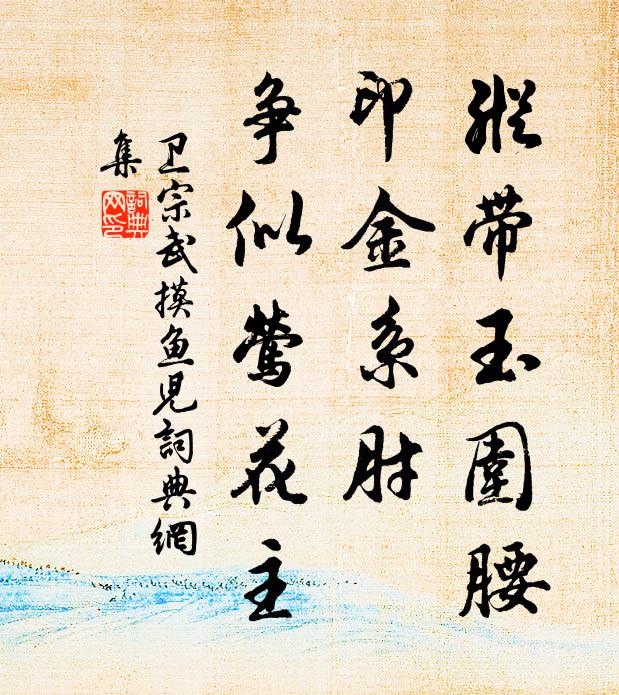 纵带玉围腰
印金系肘
争似莺花主
卫宗武摸鱼儿词典网
集
词典
网印